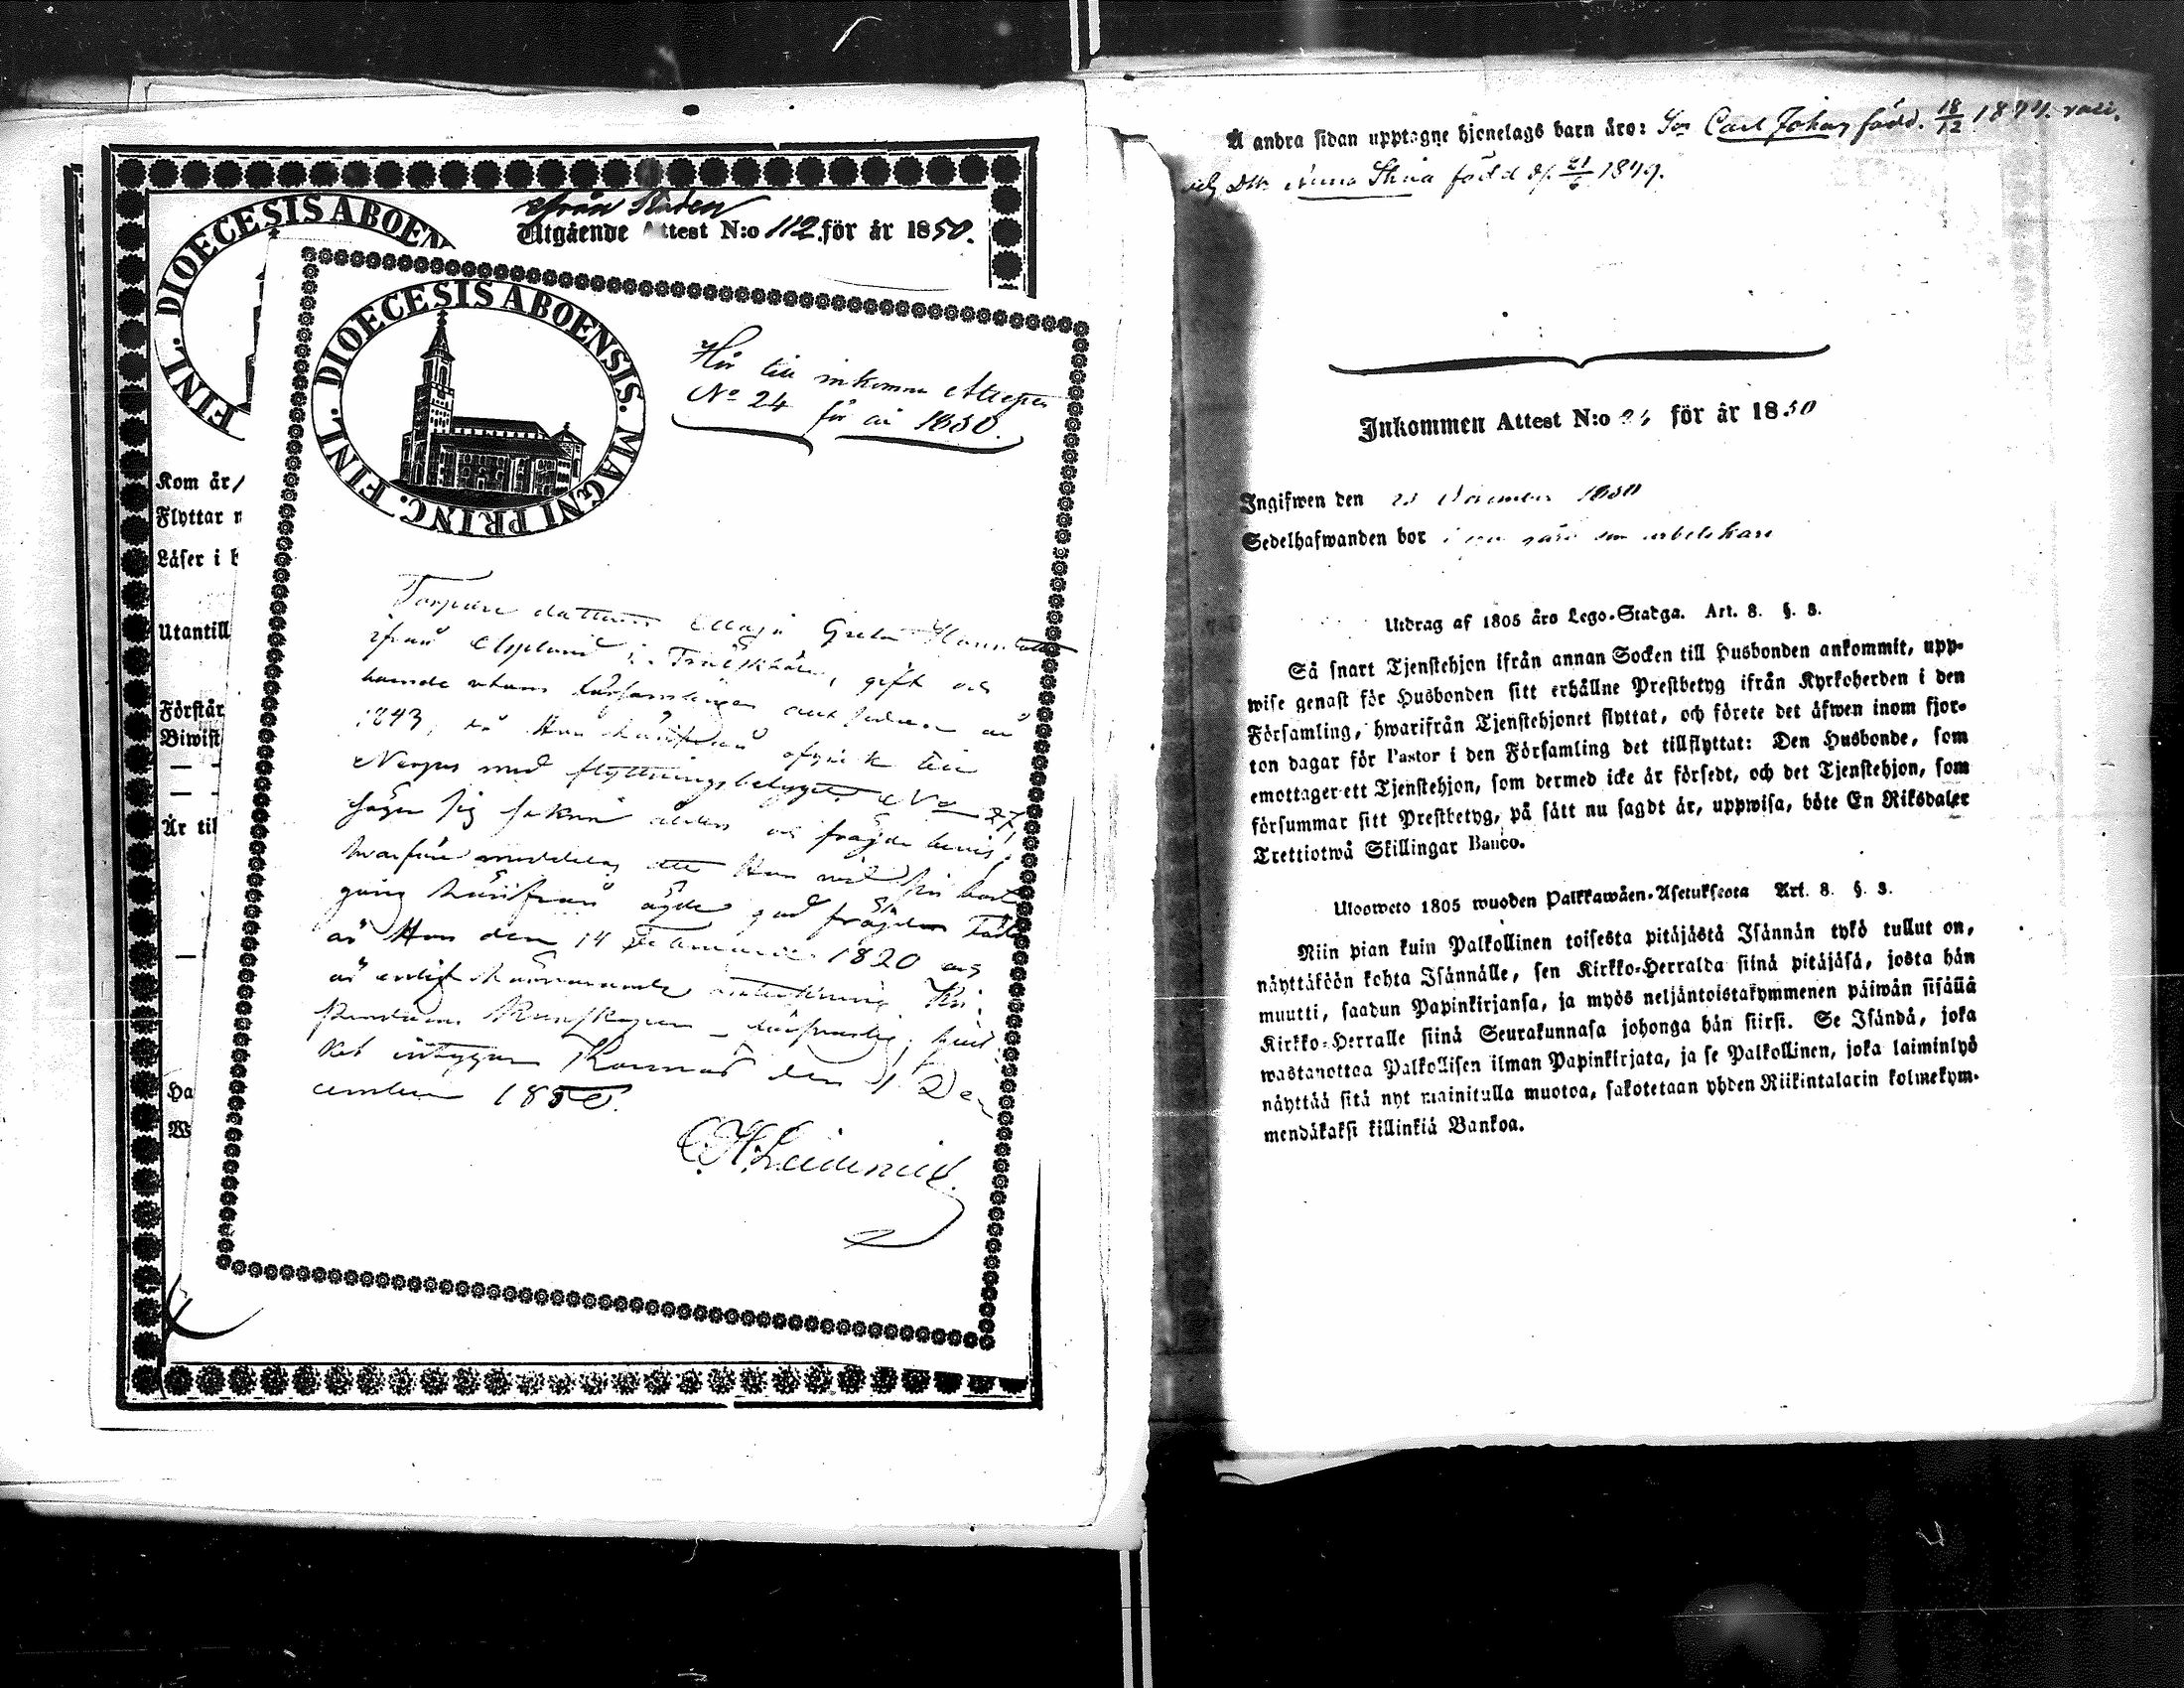 ifrån Staden
Utgående Attest N:o 112 för år 1850.
DIOECESIS ABOEN
FINL.
Kom år
Flyttar
Läser i
Utantill
Förstår
Biwist
Är til
Ha
W
DIOECESIS ABOENSIS. MAGNI PRINC. FINL.
Hör till inkomna Attesten
No 24 för år 1850.
Torpare dottren Maja Greta
ifrån i gift och
boende utom församlingen allt sedan år
1843, då Hon härifrån afgick till
Nerpes med flyttningsbetyget No 27,
säger sig sakna ålders och frägde bevis;
hvarföre meddelas att Hon vid sin bort
gång härifrån ägde god frägd. Född
är Hon den 14 1820 och
är enligt antekning Kri
stendoms Kunskapen försvarlig; hvil
ket intygar Korsnäs den 1 De
cember 1850.
C.H.
Å andra sidan upptagne hjonelags barn äro: Son Carl Johan född. 18/12 1844. vacc.
Dtr Anna Stina född d. 21/6 1849.
Inkommen Attest N:o 24 för år 1850
Ingifwen den 23 1850
Sedelhafwanden bor i som arbetskarl
Utdrag af 1805 års Lego-Stadga. Art. 8. §. 3.
Så snart Tjenstehjon ifrån annan Socken till Husbonden ankommit, upp-
wise genast för Husbonden sitt erhållne Prestbetyg ifrån Kyrkoherden i den
Församling, hwarifrån Tjenstehjonet flyttat, och förete det äfwen inom fjor-
ton dagar för Pastor i den Församling det tillflyttat: Den Husbonde, som
emottager ett Tjenstehjon, som dermed icke är försedt, och det Tjenstehjon, som
försummar sitt Prestbetyg, på sätt nu sagdt är, uppwisa, böte En Riksdaler
Trettiotwå Skillingar Banco.
Ulosweto 1805 wuoden Palkkawäen-Asetuksesta Art. 8. §. 3.
Niin pian kuin Palkollinen toisesta pitäjästä Isännän tykö tullut on,
näyttäköön kohta Isännälle, sen Kirkko-Herralda siinä pitäjäsä, josta hän
muutti, saadun Papinkirjansa, ja myös neljäntoistakymmenen päiwän sisällä
Kirkko-Herralle siinä Seurakunnasa johonga hän siirsi. Se Isändä, joka
wastanottaa Palkollisen ilman Papinkirjata, ja se Palkollinen, joka laiminlyö
näyttää sitä nyt mainitulla muotoa, sakotetaan yhden Riikintalarin kolmekym-
mendäkaksi killinkiä Bankoa.